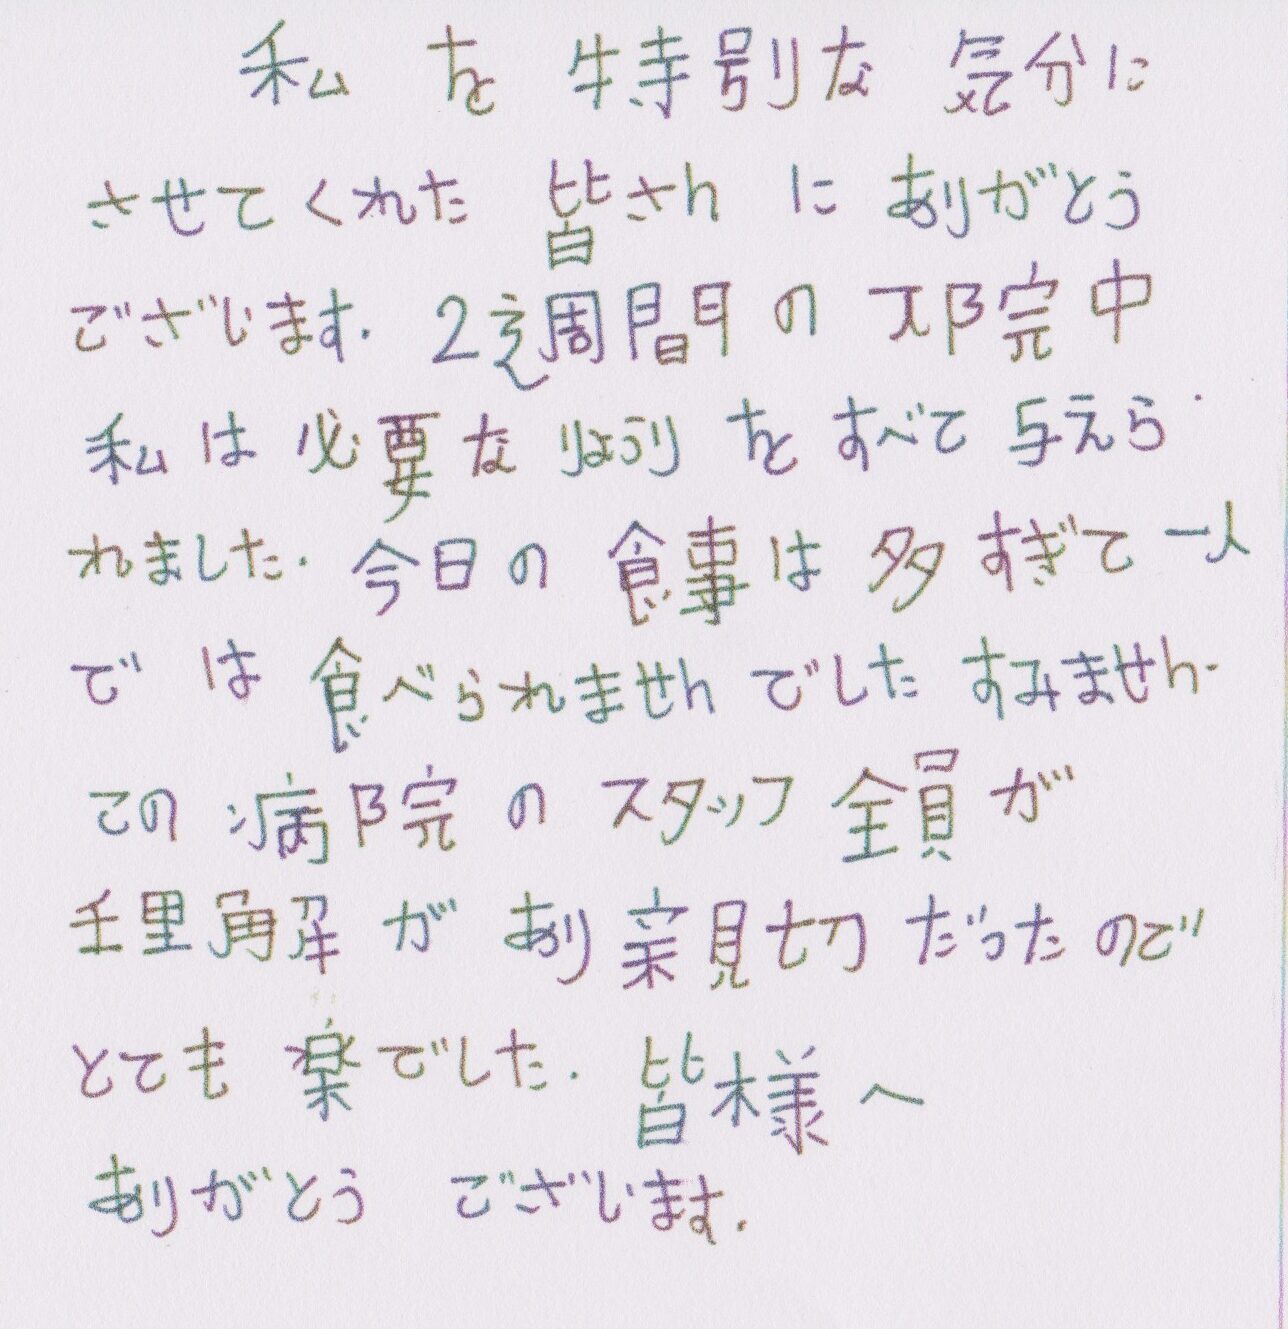 私を特別な気分に
させてくれた皆さんにありがとう
ございます. 2週間の入院中
私は必要なりょうりをすべて与えら
れました. 今日の食事は多すぎて一人
では食べられませんでしたすみません.
この病院のスタッフ全員が
理解があり親切だったので
とても楽でした. 皆様へ
ありがとうございます.